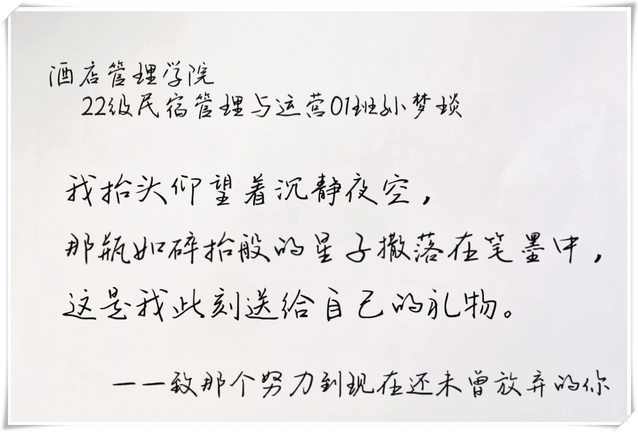 酒店管理学院
22级民宿管理与运营01班孙梦琰
我抬头仰望着沉静夜空，
那瓶如碎抬般的星子撒落在笔墨中，
这是我此刻送给自己的礼物。
——致那个努力到现在还未曾放弃的你